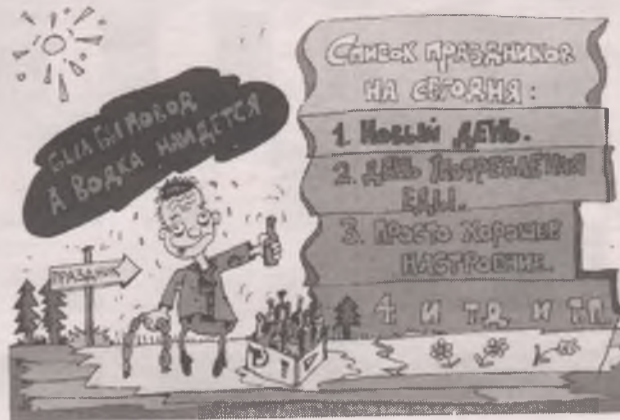 БЫЛ БЫ ПОВОД
А ВОДКА НАЙДЕТСЯ
ПРАЗДНИК
Список праздников
на сегодня:
1. Новый день.
2. День потребления
еды.
3. Просто хорошее
настроение.
4. и т.д. и т.п.